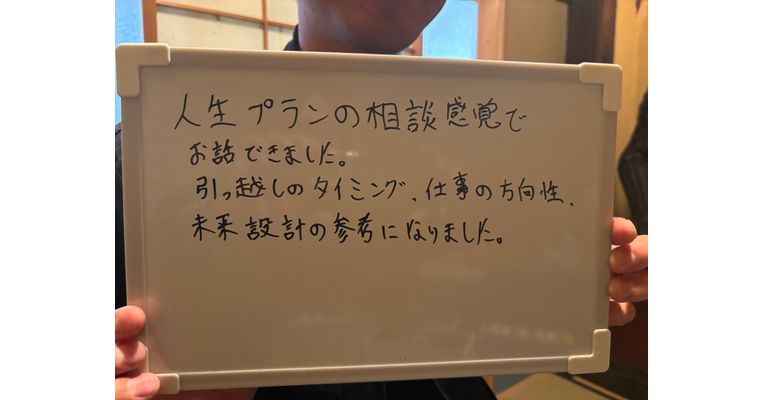 人生プランの相談感覚で
お話できました。
引っ越しのタイミング、仕事の方向性、
未来設計の参考になりました。